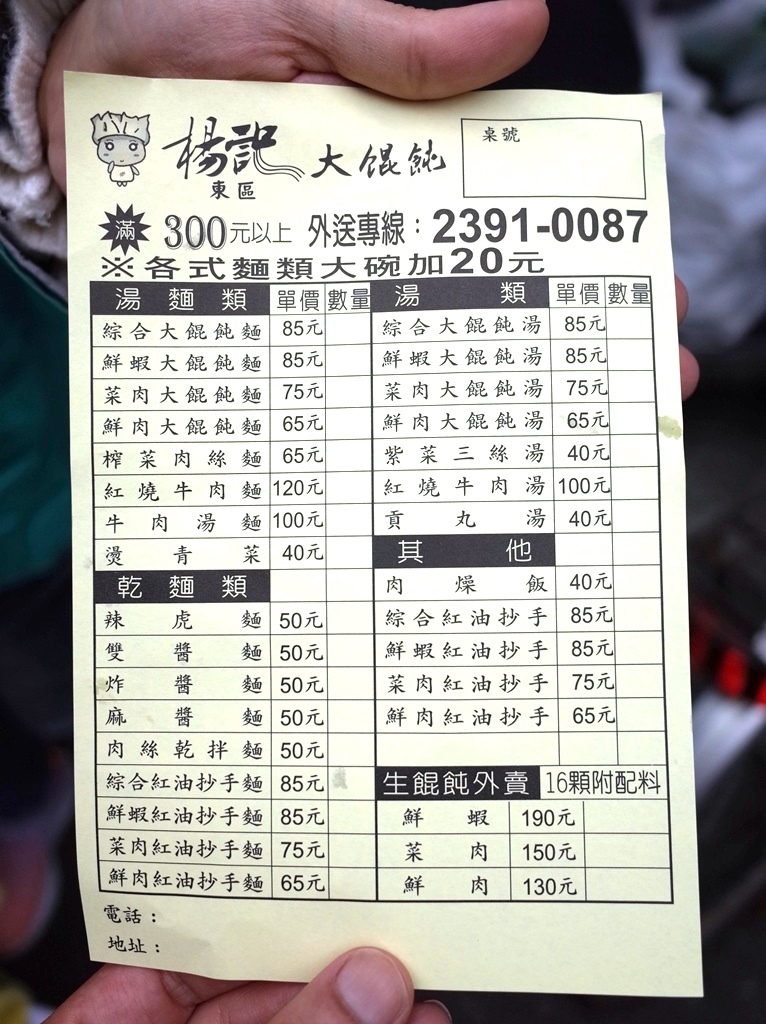 楊記 大餛飩
東區
桌號
滿 300元以上 外送專線：2391-0087
※各式麵類大碗加20元
湯麵類 單價 數量
綜合大餛飩麵 85元
鮮蝦大餛飩麵 85元
菜肉大餛飩麵 75元
鮮肉大餛飩麵 65元
榨菜肉絲麵 65元
紅燒牛肉麵 120元
牛肉湯麵 100元
燙青菜 40元
乾麵類
辣虎麵 50元
雙醬麵 50元
炸醬麵 50元
麻醬麵 50元
肉絲乾拌麵 50元
綜合紅油抄手麵 85元
鮮蝦紅油抄手麵 85元
菜肉紅油抄手麵 75元
鮮肉紅油抄手麵 65元
湯類 單價 數量
綜合大餛飩湯 85元
鮮蝦大餛飩湯 85元
菜肉大餛飩湯 75元
鮮肉大餛飩湯 65元
紫菜三絲湯 40元
紅燒牛肉湯 100元
貢丸湯 40元
其他
肉燥飯 40元
綜合紅油抄手 85元
鮮蝦紅油抄手 85元
菜肉紅油抄手 75元
鮮肉紅油抄手 65元
生餛飩外賣 16顆附配料
鮮蝦 190元
菜肉 150元
鮮肉 130元
電話：
地址：